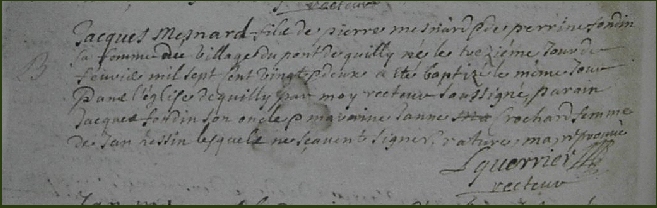 recteur
Jacques mesnard fils de pierre mesnard & de perrine fondin
sa femme du village du pont de quilly né le treziéme Jour de
feuvrie mil sept sent vingt & deux a été baptizé le même Jour
dans l'église de quilly par moy recteur soussigné, parain
Jacques fondin son oncle & maraine Janne rochard femme
de Jan lesquels ne scavent signer, rature approuvé
Lguerrier
recteur